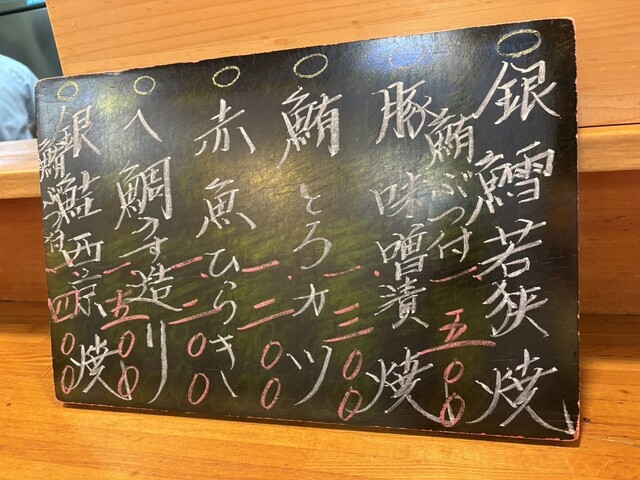 銀鱈若狭焼
鮪ぶつ付
一、五〇〇
豚味噌漬焼
一、三〇〇
鮪とろカツ
一、二〇〇
赤魚ひらき
一、二〇〇
へ鯛造り
一、五〇〇
銀鮭西京焼
一、四〇〇